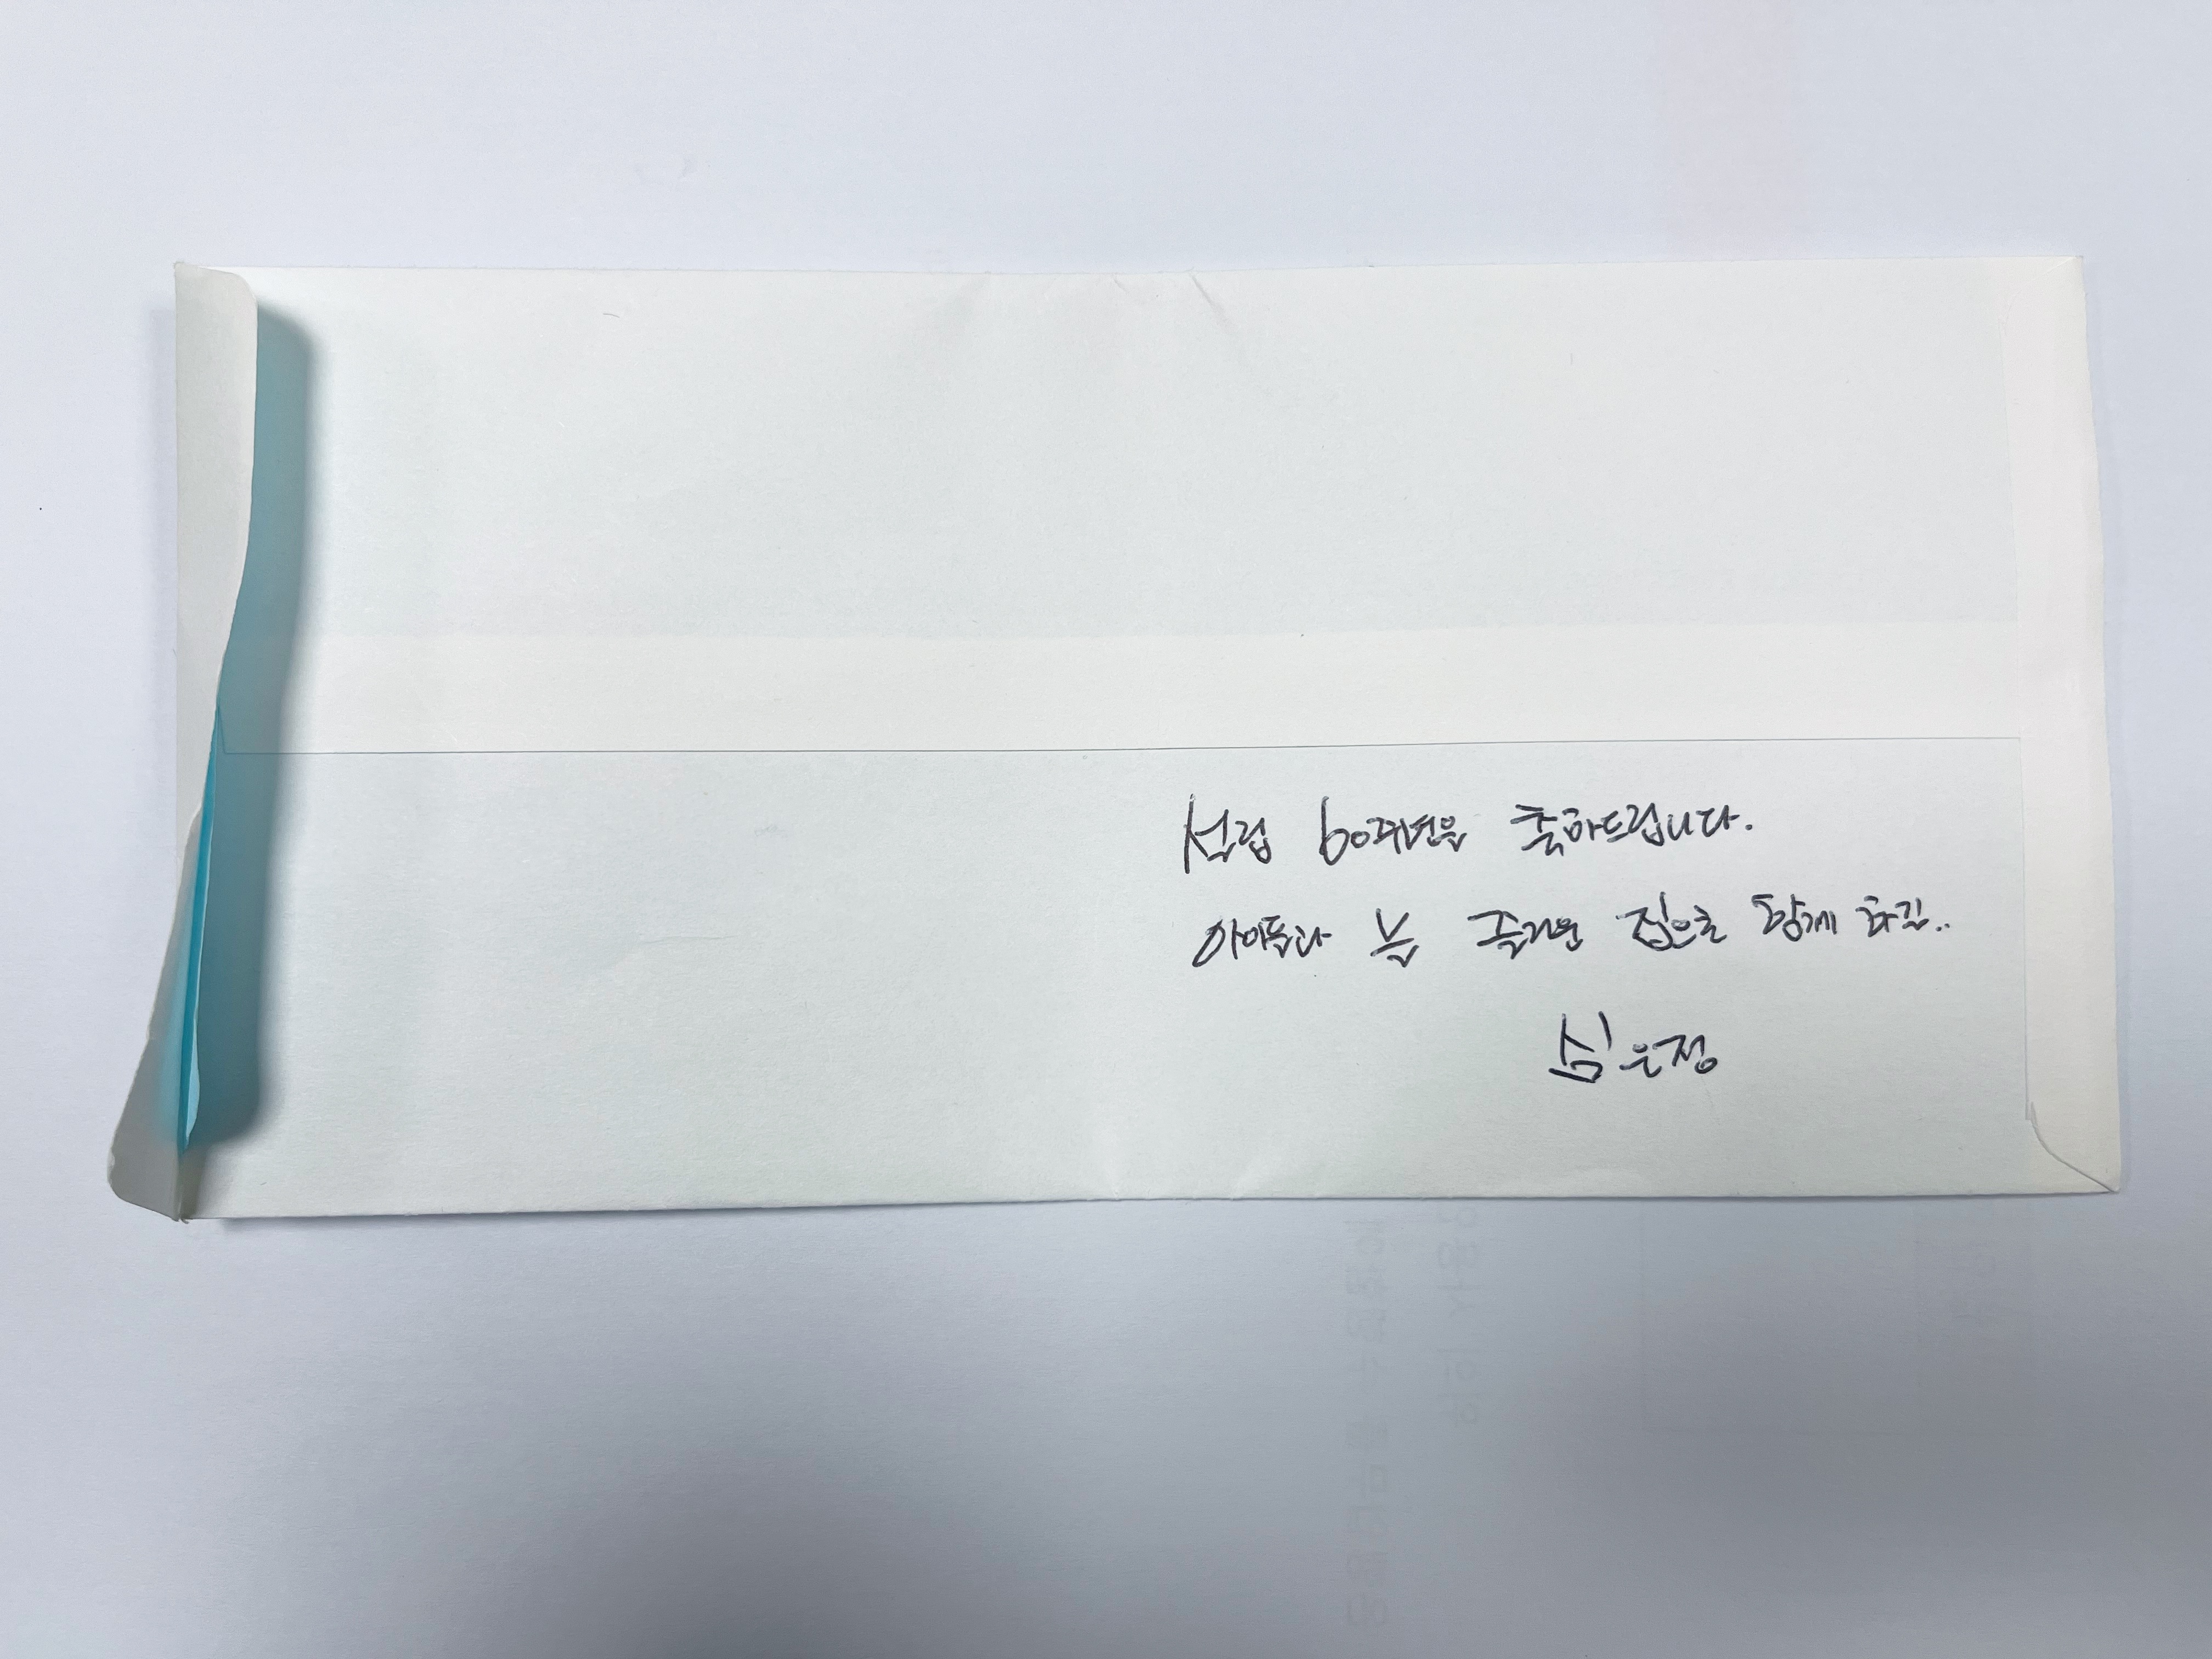 설립 60주년을 축하드립니다.
아이들과 늘 즐거운 집으로 함께 하길..
심은정